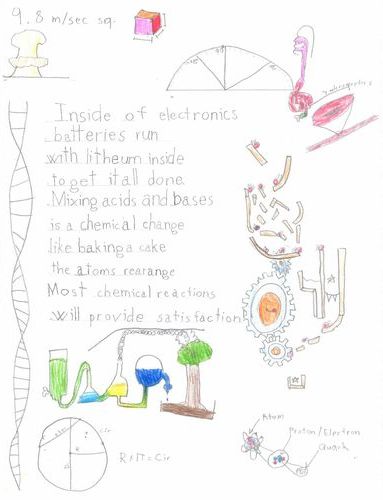 9.8 m/sec sq.
Inside of electronics
batteries run
with litheum inside
to get it all done.
Mixing acids and bases
is a chemical change
like baking a cake
the atoms rearange
Most chemical reactions
will provide satisfaction
Atom
Proton/Electron
Quark
Cir
R